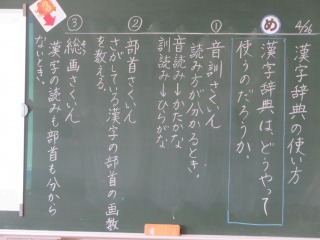 4/26
漢字辞典の使い方
め
漢字辞典は、どうやって
使うのだろうか。
① 音訓さくいん
読み方が分かるとき。
音読み→かたかな
訓読み→ひらがな
② 部首さくいん
さがしている漢字の部首の画数
を数える。
③ 総画さくいん
漢字の読みも部首も分から
ないとき。